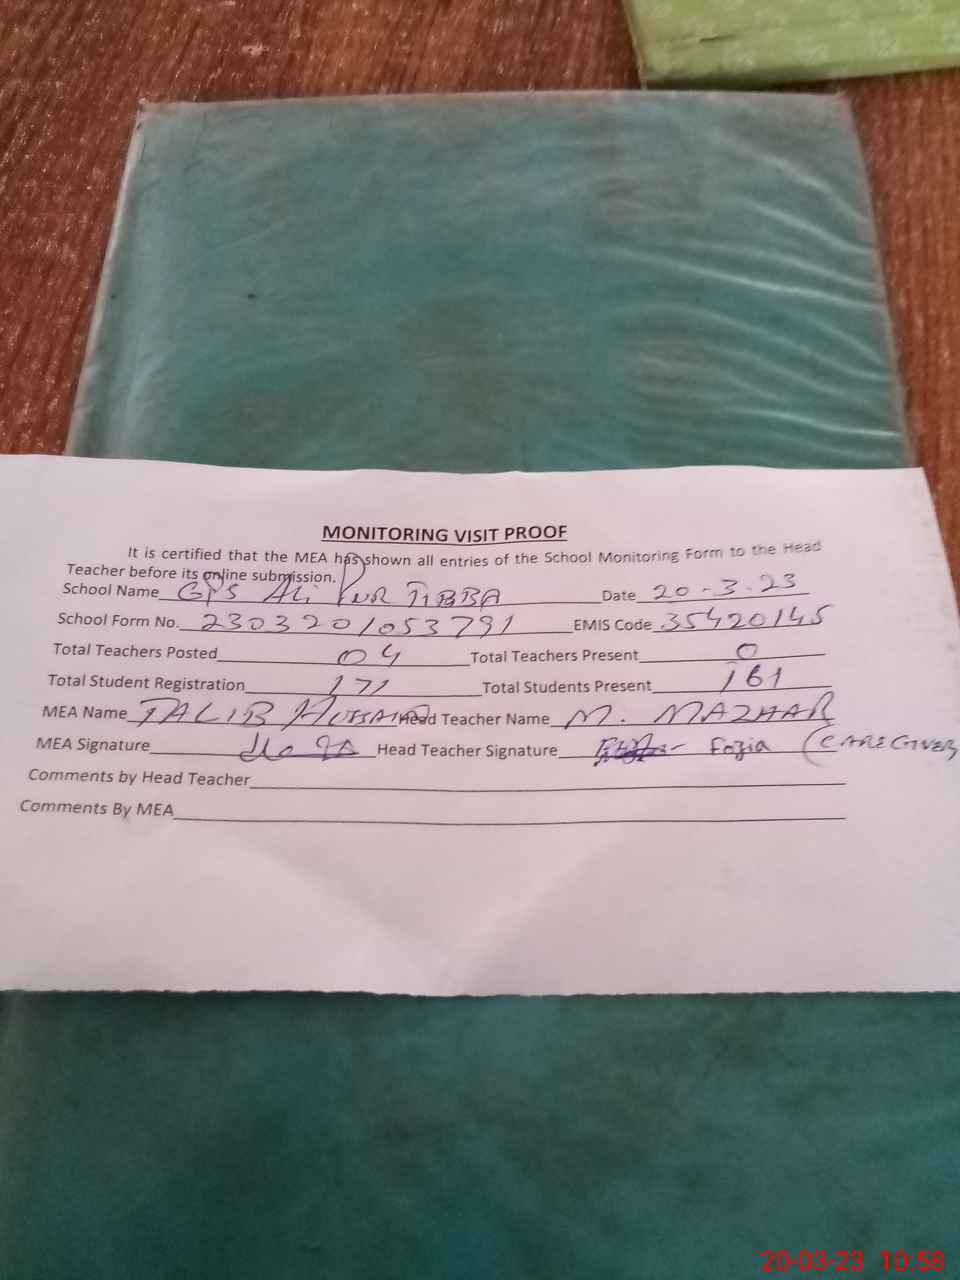 MONITORING VISIT PROOF
It is certified that the MEA has shown all entries of the School Monitoring Form to the Head
Teacher before its online submission.
School Name GPS Ali PUR TIBBA Date 20-3-23
School Form No. 2303201053791 EMIS Code 35420145
Total Teachers Posted 04 Total Teachers Present 0
Total Student Registration 171 Total Students Present 161
MEA Name TALIB HUSSAIN Head Teacher Name M. MAZHAR
MEA Signature Head Teacher Signature Fozia (CAREGIVER
Comments by Head Teacher
Comments By MEA
20-03-23 10:58